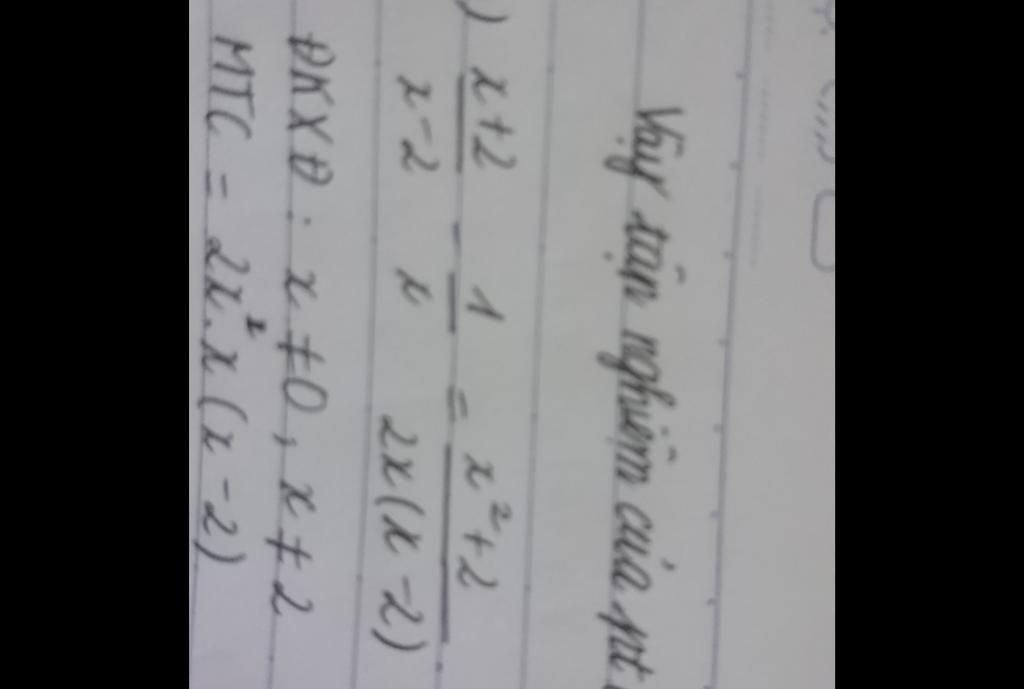 Vậy tận nghiệm của pt
) x+2/x-2 - 1/x = x²+2/2x(x-2)
ĐKXĐ: x ≠ 0, x ≠ 2
MTC = 2x².x(x-2)